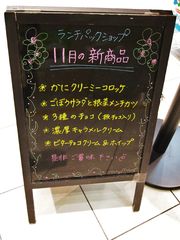 ランチパックショップ
11月の新商品
* かにクリーミーコロッケ
* ごぼうサラダと根菜メンチカツ
* 3種のチョコ(板チョコ入り)
* 濃厚キャラメルクリーム
* ビターチョコクリーム&ホイップ
是非ご賞味下さい